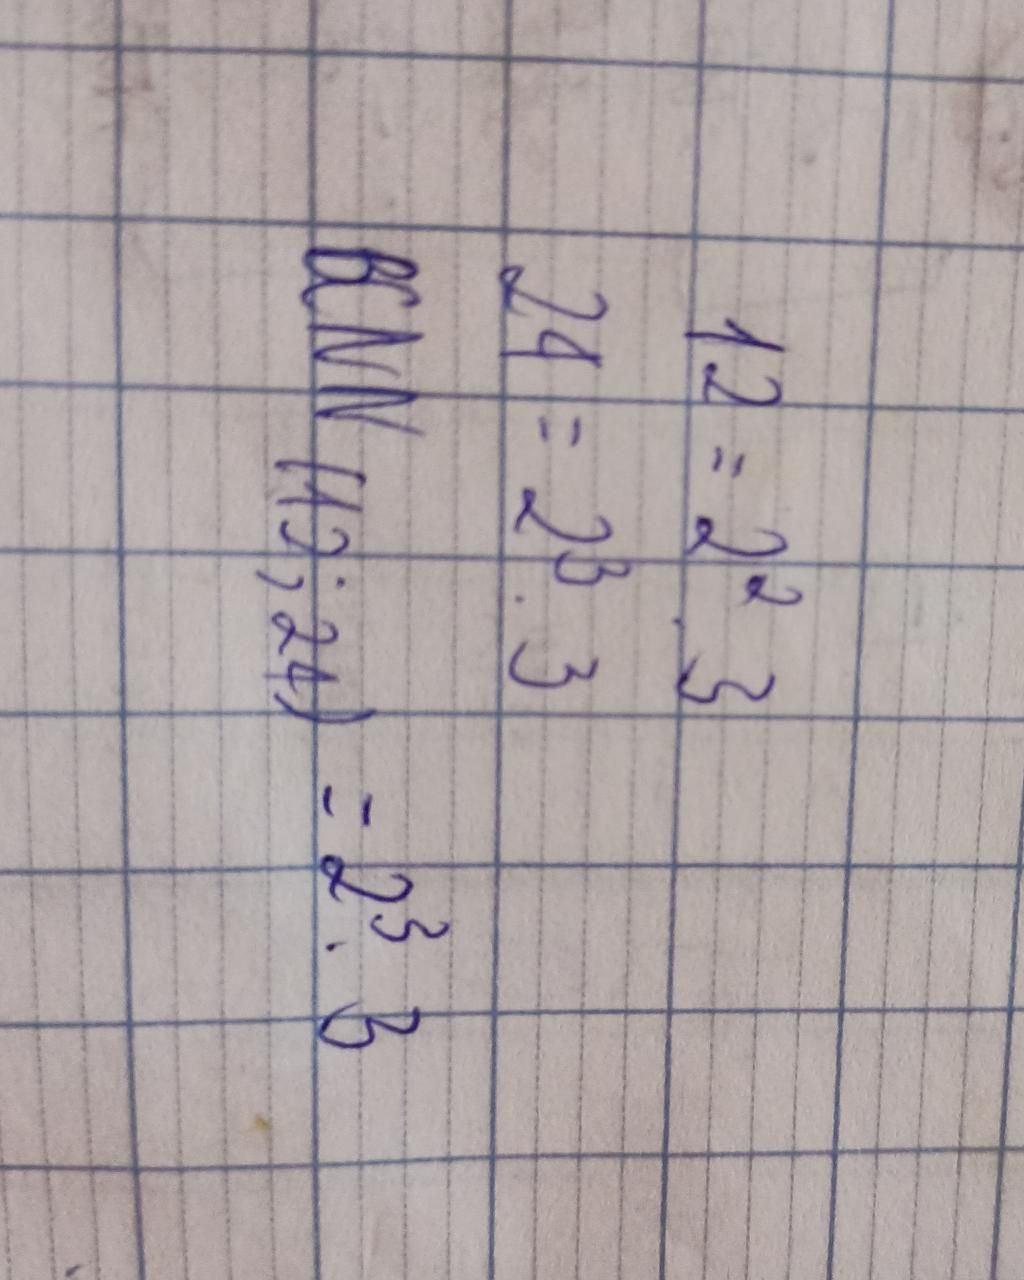 12 = 2² . 3
24 = 2³ . 3
BCNN (12; 24) = 2³ . 3